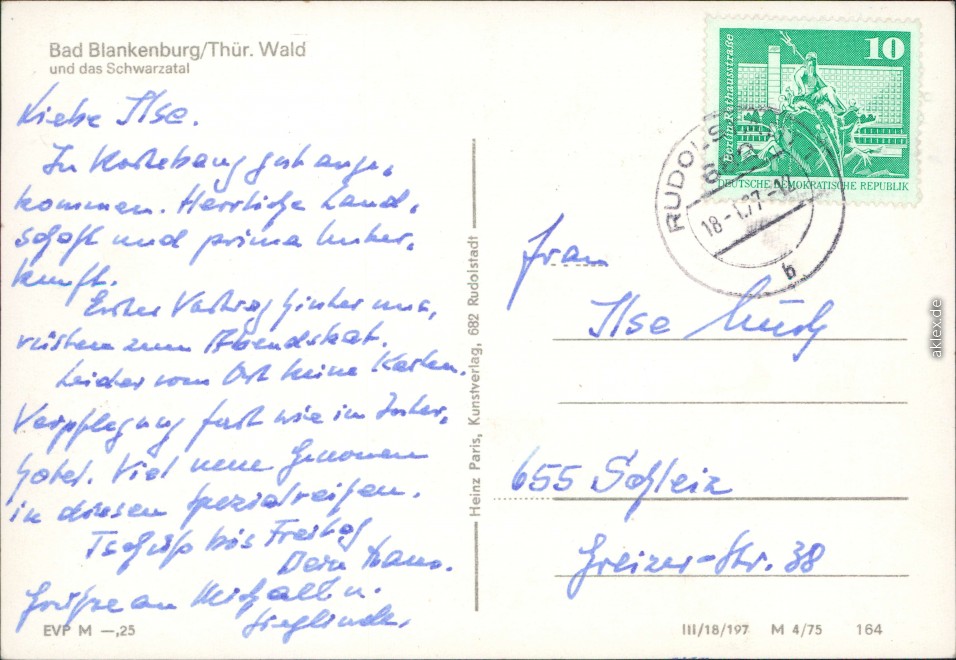 Bad Blankenburg/Thür. Wald
und das Schwarzatal
Liebe Ilse.
In gut ange,
kommen. Herrliche Land,
schaft und prima Unter,
kunft.
Erster Vortrag hinter uns,
rüsten zum Abendskat.
Leider vom Ort keine Karten.
Verpflegung fast wie im Inter,
hotel. Viel neue
in diesen
Tschüß bis Freitag
Dein Hans.
Grüße an u.
Sieglinde.
EVP M —,25
Heinz Paris, Kunstverlag, 682 Rudolstadt
10
Berlin-Rathausstraße
DEUTSCHE DEMOKRATISCHE REPUBLIK
RUDOLS
18-1.77-
b
Frau
Ilse
655 Schleiz
Greizer-Str. 38
III/18/197 M 4/75 164
aklex.de